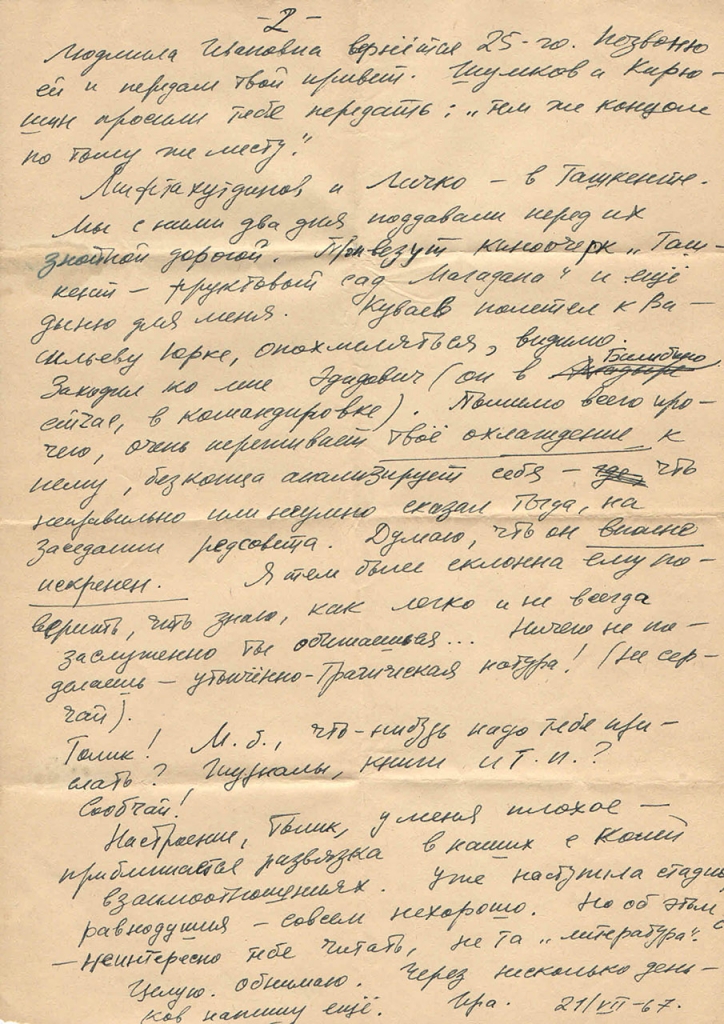 -2-
Людмила Ивановна вернётся 25-го. Позвоню
ей и передам твой привет. Шумков и Кирю-
шин просили тебе передать: „тем же концом
по тому же месту".
Мифтахутдинов и Личко - в Ташкенте.
Мы с ними два дня поддавали перед их
знойной дорогой. Привезут киноочерк „Таш-
кент - фруктовый сад Магадана" и ещё
дыню для меня. Куваев полетел к Ва-
сильеву Юрке, опохмеляться, видимо.
Заходил ко мне Эдидович (он в Билибино
сейчас, в командировке). Помимо всего про-
чего, очень переживает твоё охлаждение к
нему, без конца анализирует себя - что
неправильно или неумно сказал тогда, на
заседании редсовета. Думаю, что он вполне
искренен. Я тем более склонна ему по-
верить, что знаю, как легко и не всегда
заслуженно ты обижаешься... Ничего не по-
делаешь - утончённо-трагическая натура! (Не сер-
чай).
Толик! М.б., что-нибудь надо тебе при-
слать? Журналы, книги и т.п.?
Сообчай!
Настроение, Толик, у меня плохое -
приближается развязка в наших с Колей
взаимоотношениях. Уже наступила стадия
равнодушия - совсем нехорошо. Но об этом
- неинтересно тебе читать, не та „литература".
Целую. обнимаю. Через несколько день-
ков напишу ещё. Ира. 21/VII-67.